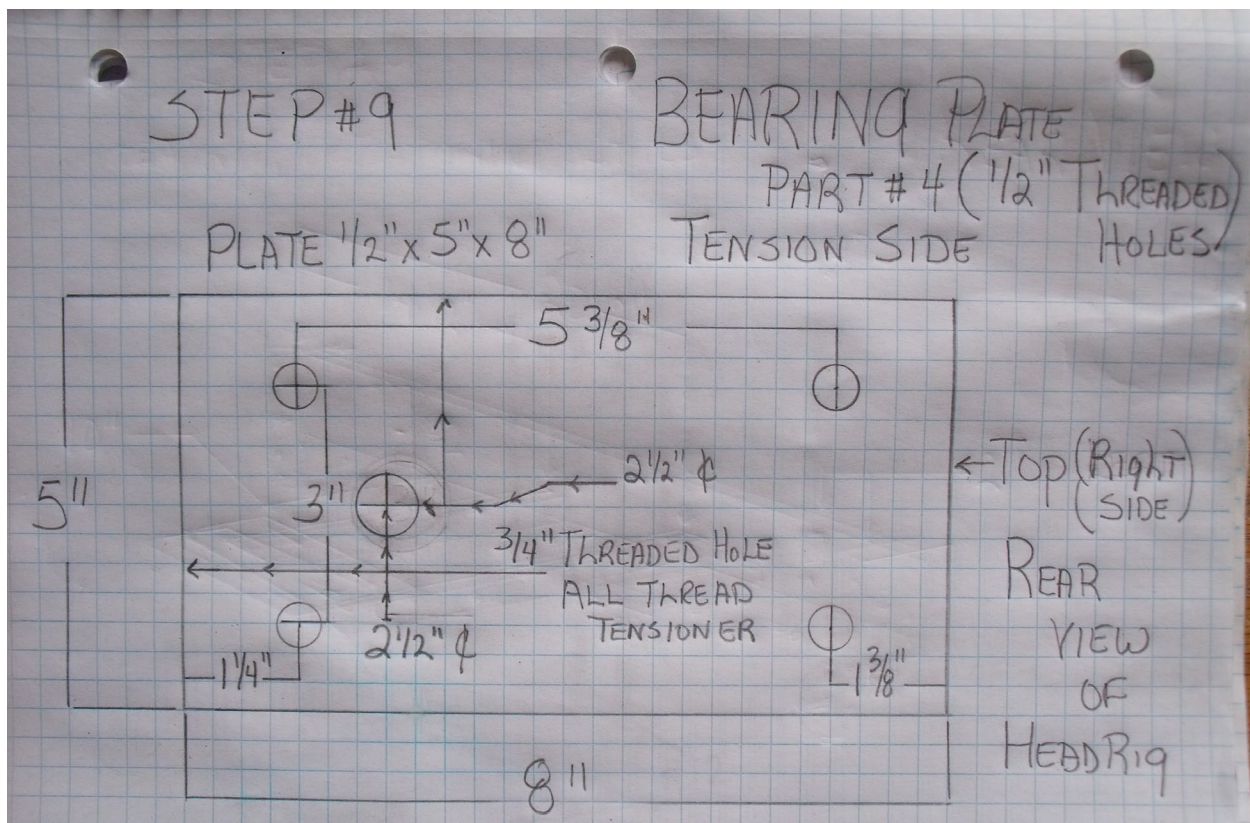 STEP #9
BEARING PLATE
PART # 4 (1/2" THREADED
HOLES)
PLATE 1/2" x 5" x 8"
TENSION SIDE
5 3/8"
5"
3"
2 1/2" ₵
←TOP (RIGHT
SIDE)
3/4" THREADED HOLE
ALL THREAD
TENSIONER
2 1/2" ₵
1 1/4"
1 3/8"
REAR
VIEW
OF
HEADRIG
8"